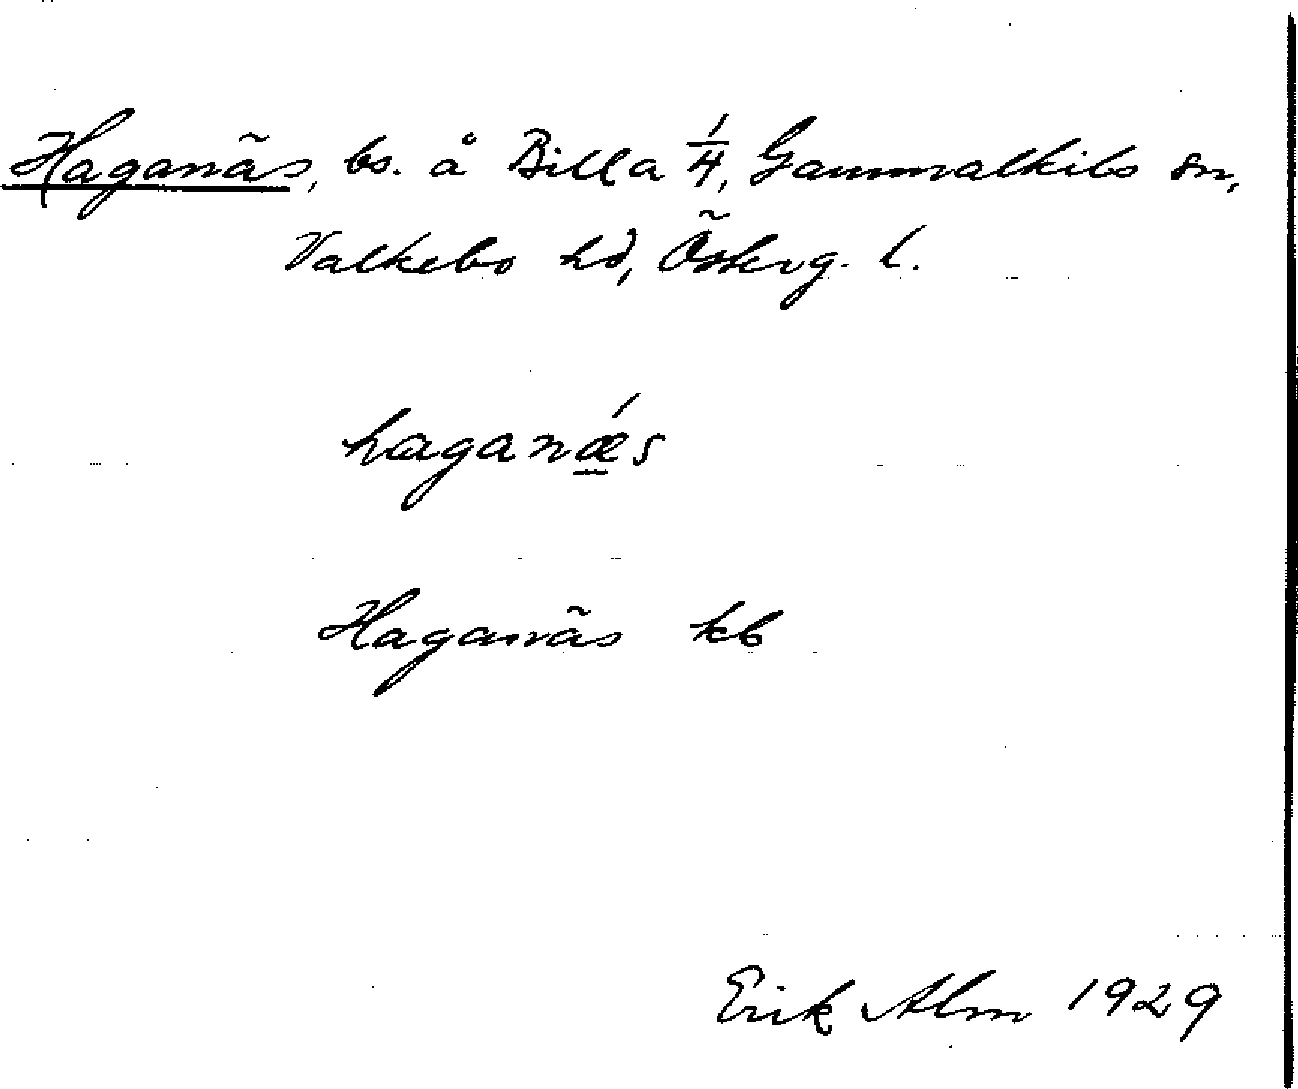 Haganäs, bs. å Billa 1/4, Gammalkils sn,
Valkebo hd, Österg. l.
haganǽs
Haganäs kb
Erik Alm 1929